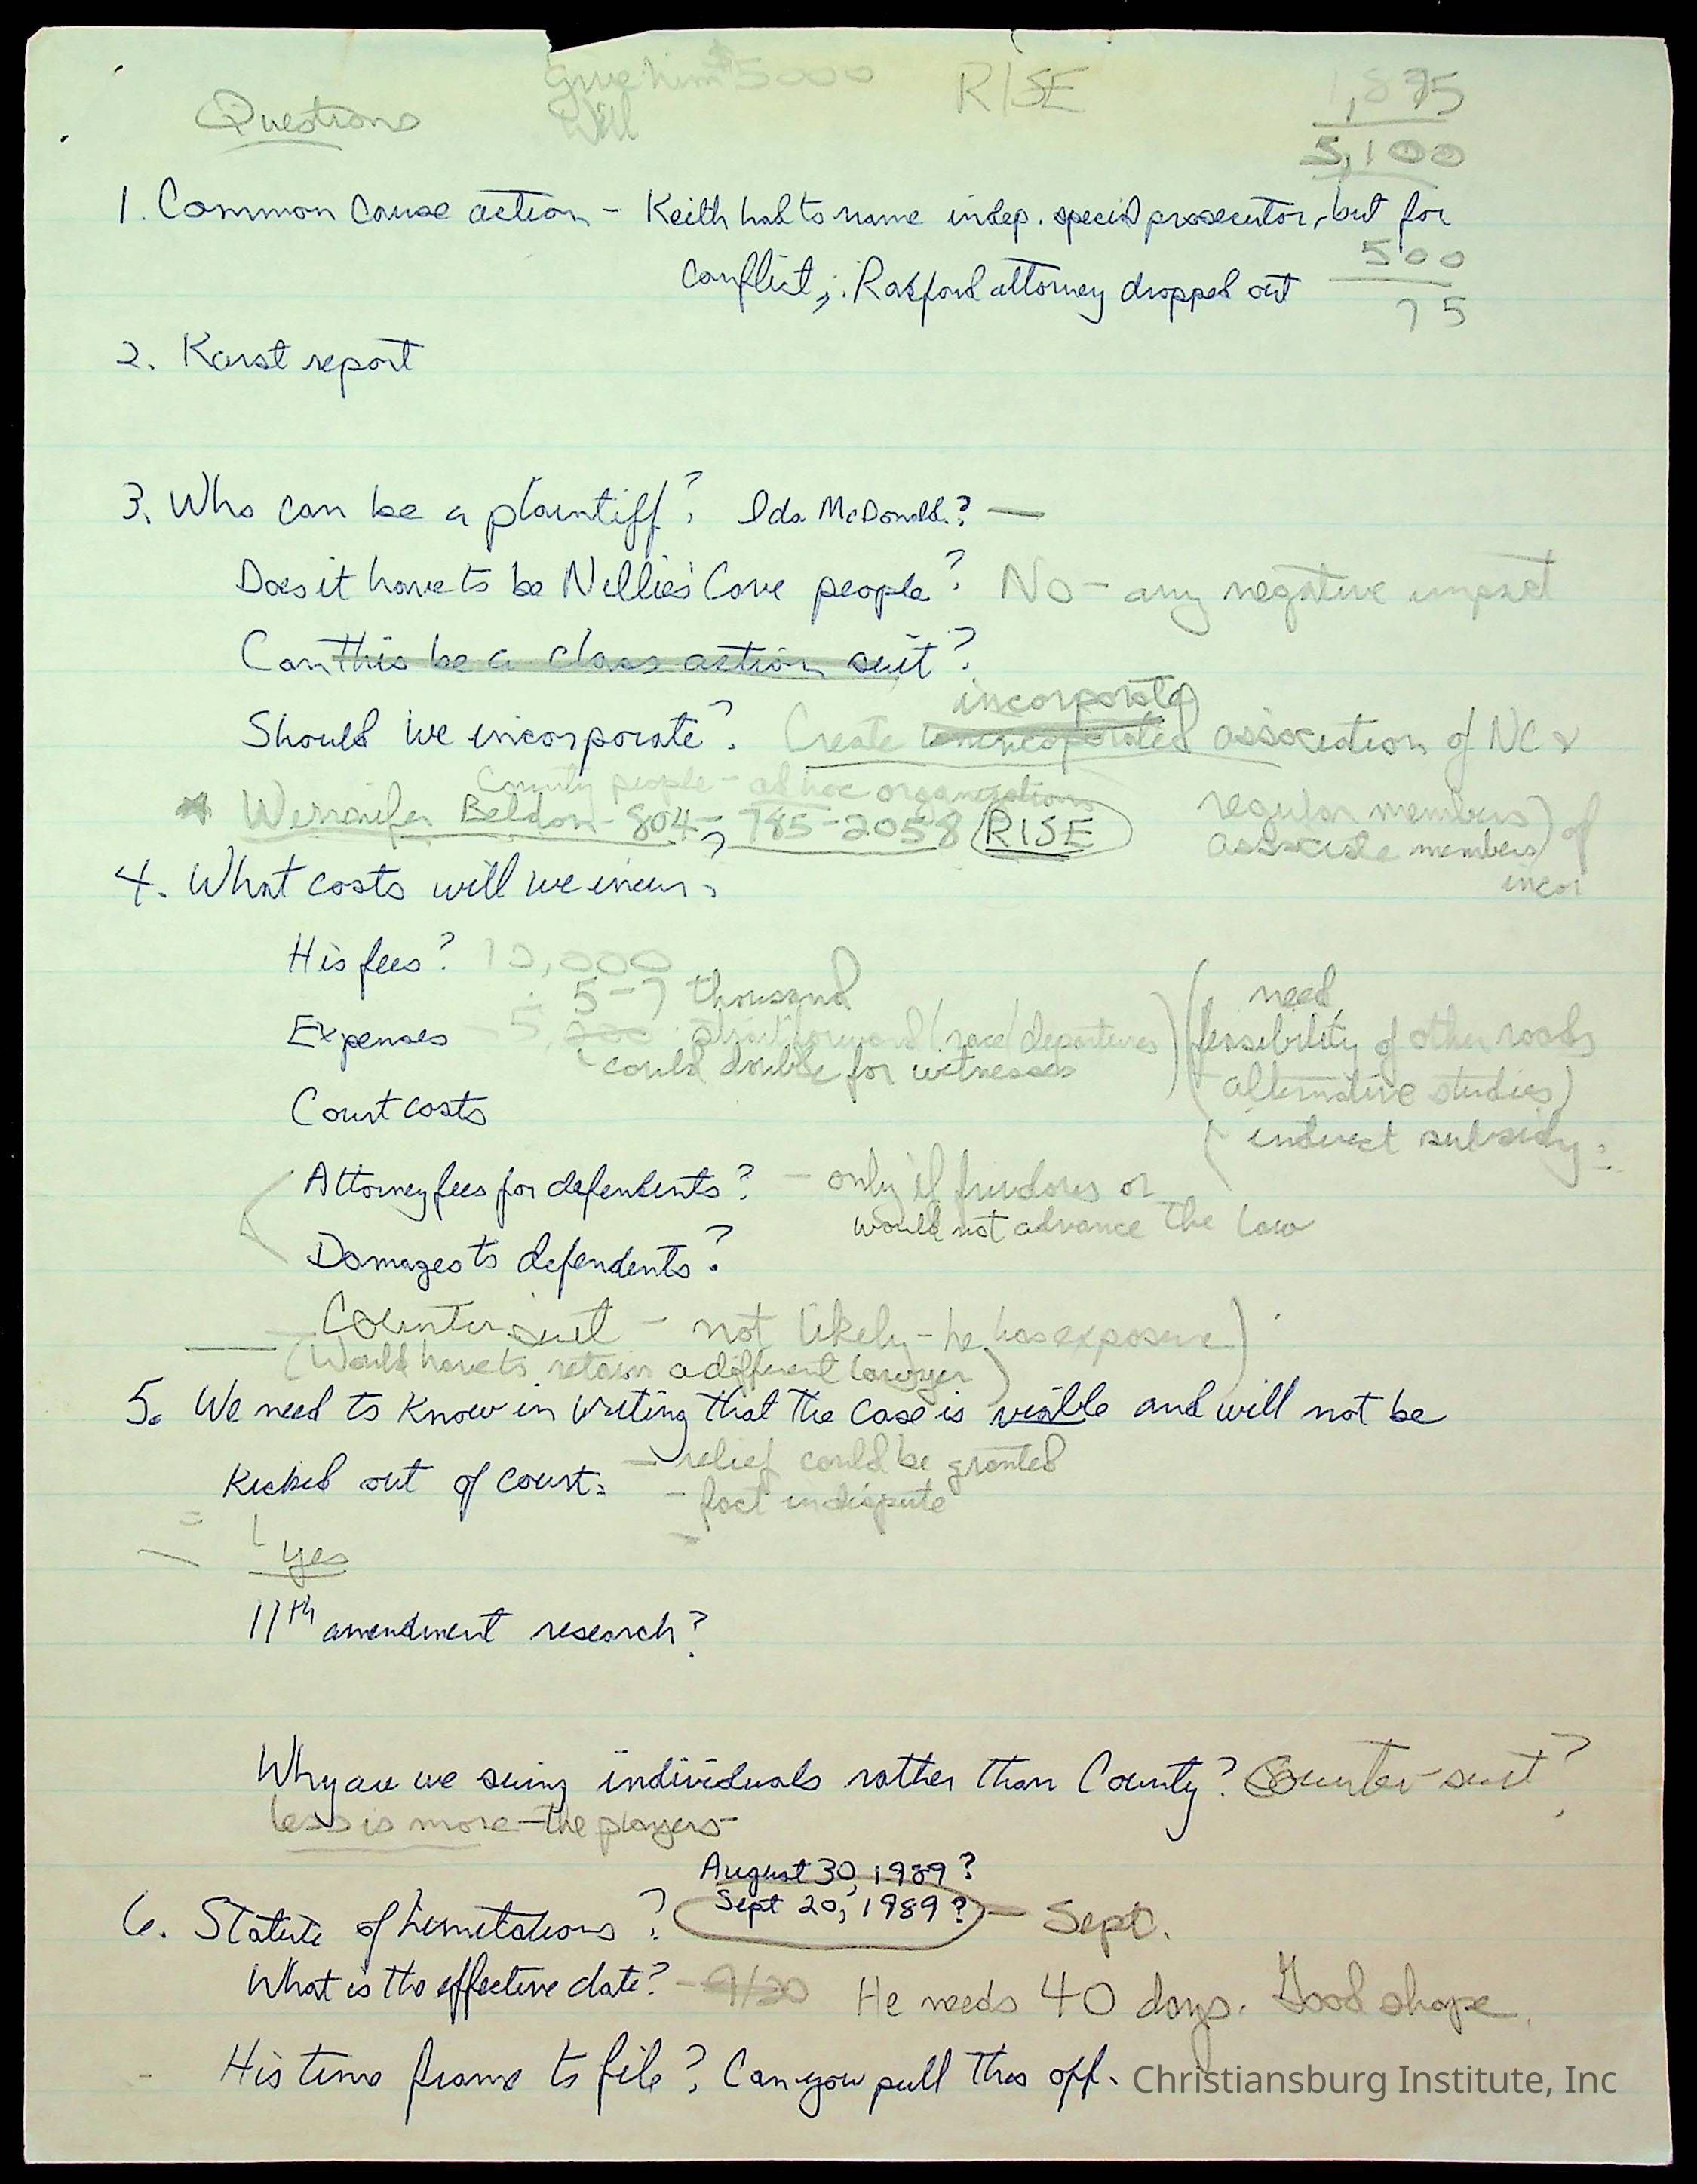 Give him $5000
RISE
1,875
Questions
Will
5,100
1. Common Cause action - Keith had to name indep. special prosecutor, but for
500
conflict, ∴ Radford attorney dropped out
75
2. Karst report
3. Who can be a plaintiff? Ida McDonald? —
Does it have to be Nellie's Cave people? No - any negative impact
Can this be a class action suit?
incorporated
Should we incorporate? Create unincorporated association of NC &
County people - ad hoc organizations
regular members) of
* Beldon - 804-785-2058 RISE
associate members)
incor
4. What costs will we incur?
His fees? 10,000
5-7 thousand
need
Expenses - 5, straitforward (race/departures)
feasibility of other roads
could double for witnesses
alternative studies)
Court costs
indirect subsidy.
Attorney fees for defendents? - only if frivolous or
would not advance the law
Damages to defendents?
Counter suit - not likely - he has exposure)
(Would have to retain a different lawyer)
5. We need to know in writing that the case is viable and will not be
- relief could be granted
kicked out of court.
- fact in dispute
yes
11th amendment research?
Why are we suing individuals rather than County? Counter-suit?
less is more - the players -
August 30, 1989?
Sept 20, 1989? - Sept.
6. Statute of Limitations?
What is the effective date? - 9/20 He needs 40 days. Good shape.
His time frame to file? Can you pull this off.
Christiansburg Institute, Inc